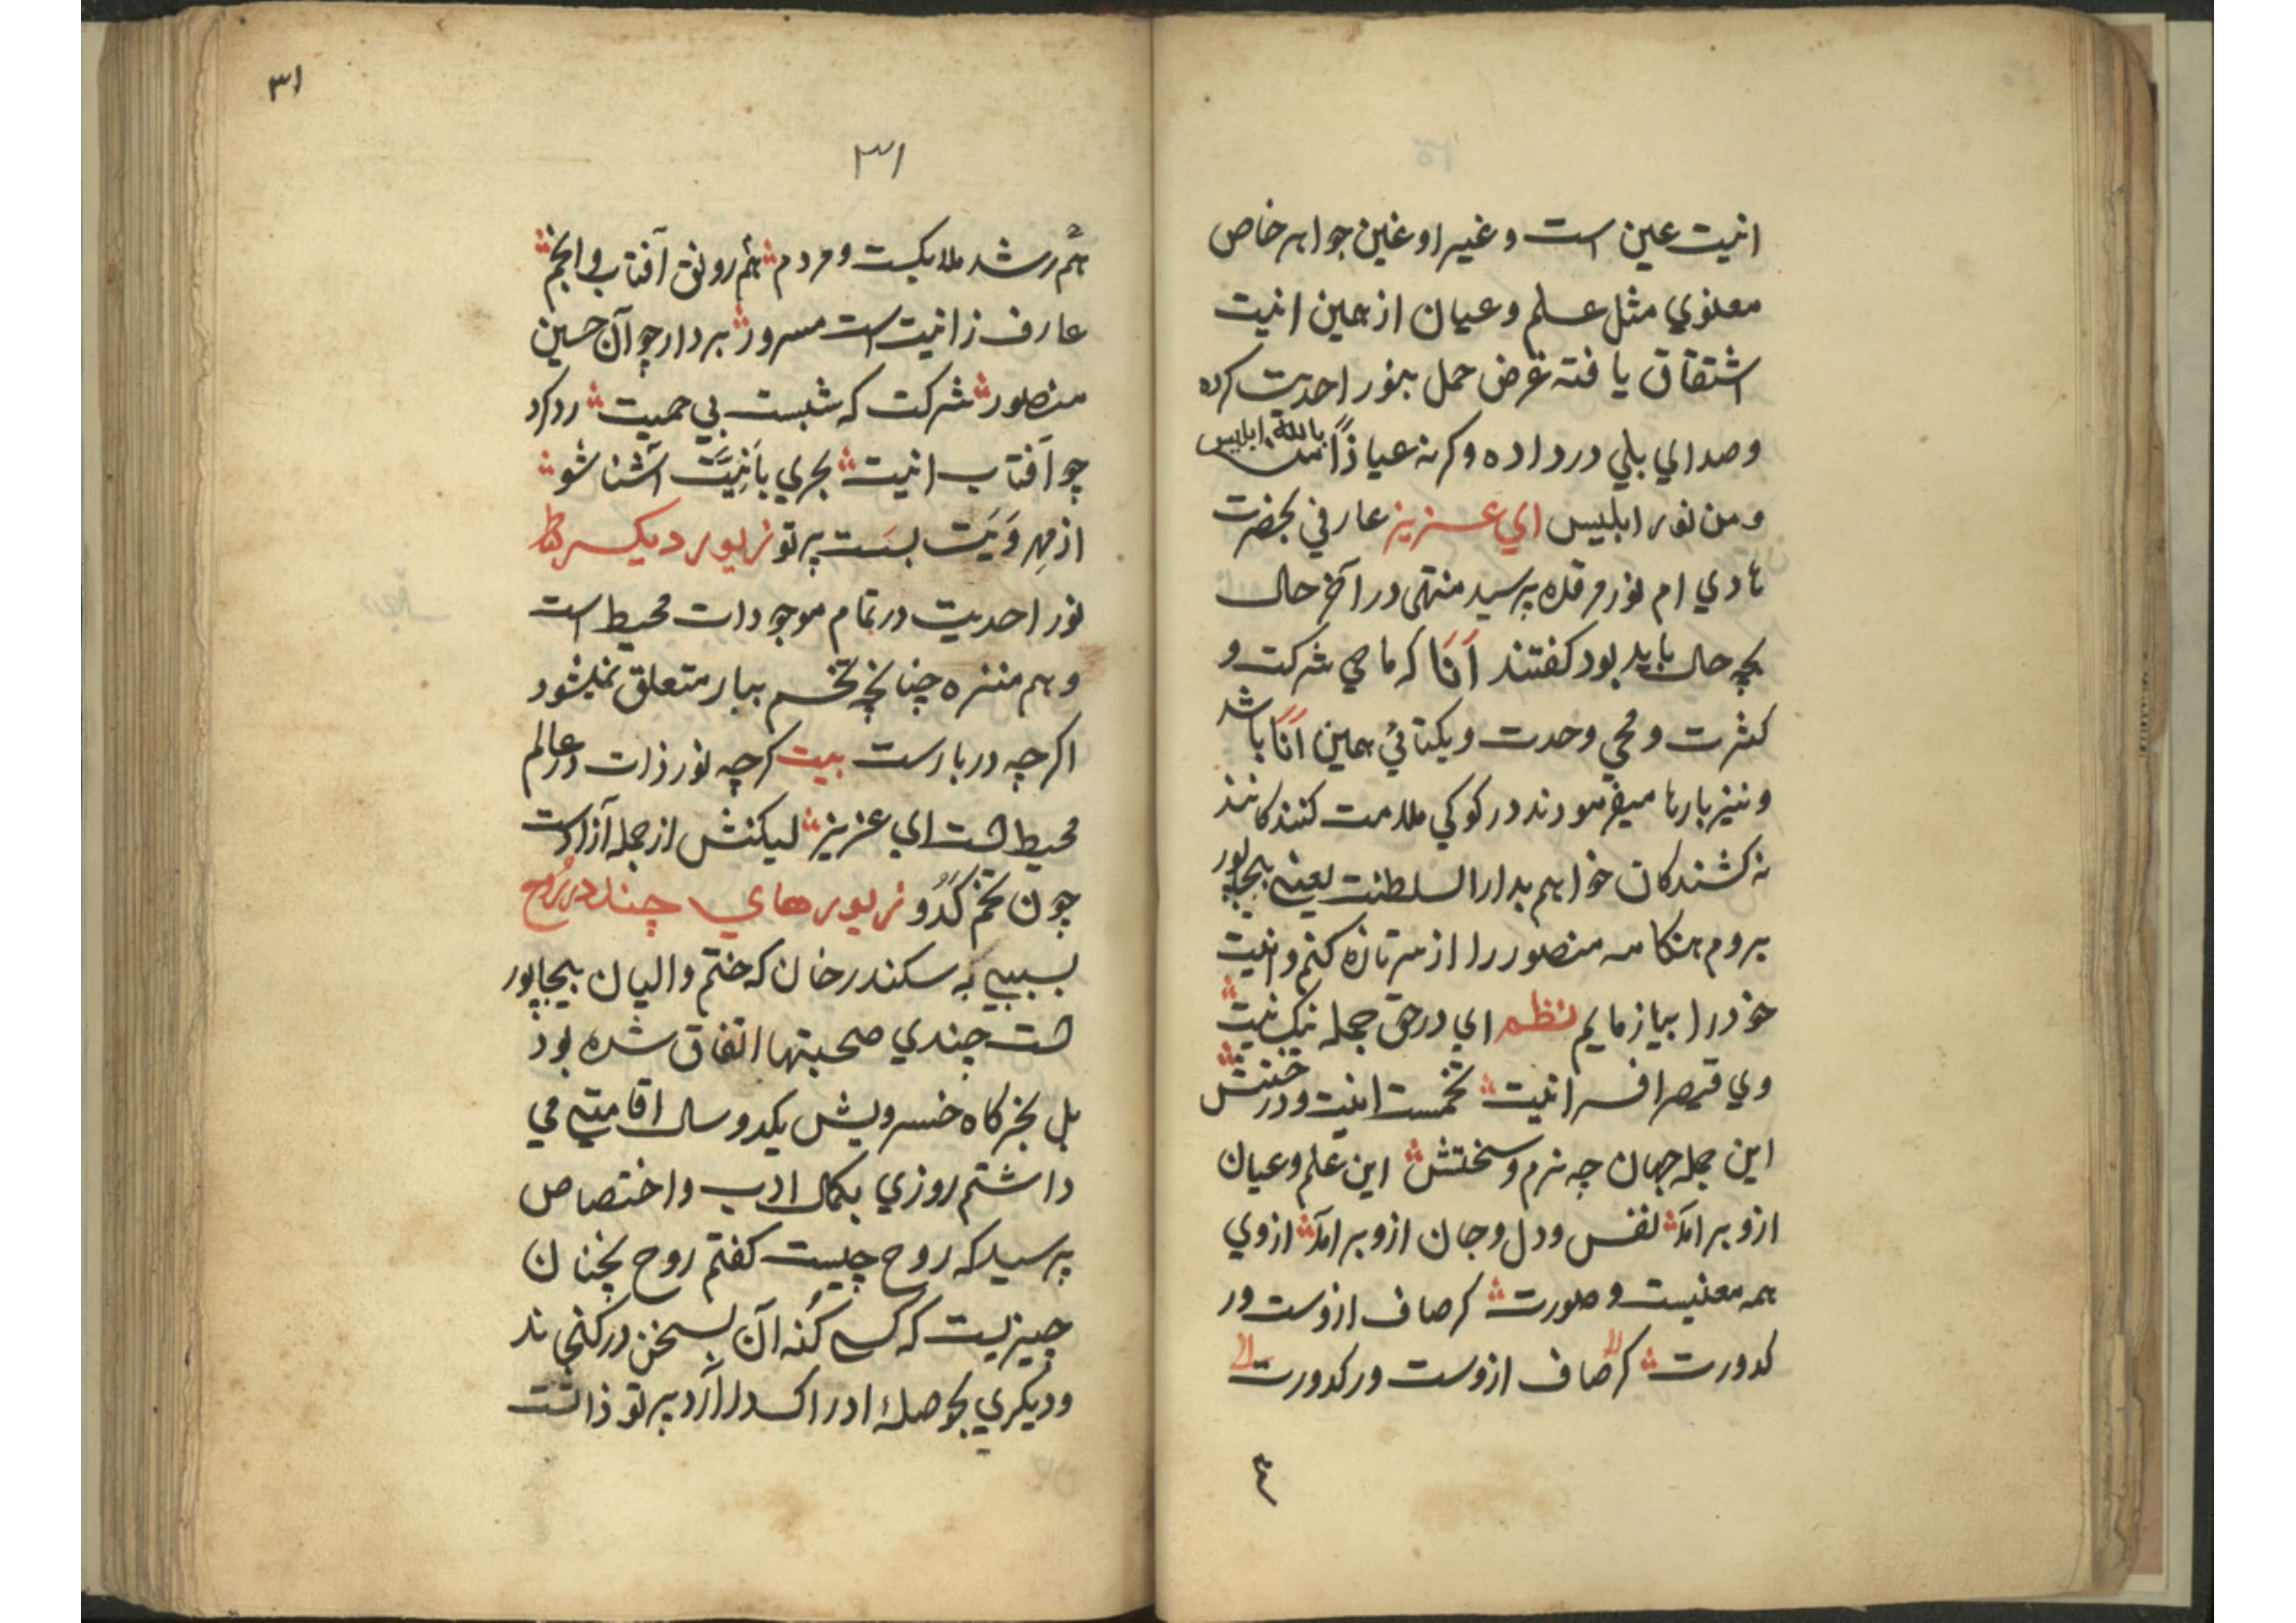 انیت عین است و غیر او غین جواهر خاص
معنوي مثل علم و عیان از عین انیت
اشتقاق یافته عرض حمل بنور احدیت کرده
و صداي بلي در داده وکرنه عیاذًا بالله ابلیس
و من نور ابلیس اي عزیز عارفي بحضرت
هادي ام نور مرقده پرسید منتهی در آخر حال
بچه حال باید بود کفتند اَنَا که ماحي شرکت و
کثرت و محي وحدت و یکتائي همین اَنَا باشد
و نیز بارها میفرمودند در کوکي ملامت کنندکانند
نه کشندکان خواهم بدار السلطنت یعنی بیجاپور
بروم هنکامه منصور را از سر تازه کنم و انیت
خود را بیازمایم نظم اي در حق جمله نیک نیت
وي قیصر افسر انیت تخمست انیت و درختش
این جمله جهان چه نرم و سختش این علم و عیان
ازو برآمد نفس و دل و جان ازو برآمد ازوي
همه معنیست و صورت کر صاف ازوست ور
کدورت کر صاف ازوست ور کدورت
٣١
٣١
هم رشد ملایکست و مردم هم رونق آفتاب و انجم
عارف ز انیت است مسرور بردار چو آن حسین
منصور شرکت که شبست بي حمیت رد کرد
چو آفتاب انیت بحري بَانِیَّت آشنا شو
از مهر وَیَت بسَست پرتو زیور دیکر
نور احدیت در تمام موجودات محیط است
و هم منزه چنانچه تخم ببار متعلق نمیشود
اکرچه در بارست بیت کرچه نور ذات در عالم
محیط است اي عزیز لیکنش از جمله آزادست
چون تخم کَدُو زیورهاي چند در روح
بسببي که سکندر خان که ختم والیان بیجاپور
است چندي صحبتها اتفاق شده بود
بل بخرکاه خسرویش یکدو سال اقامتي مي
داشتم روزي بکمال ادب و اختصاص
پرسید که روح چیست کفتم روح بخنان
چیزیست که کسي کُنه آن بسخن در کنجاند
و دیکري بحوصلهٔ ادراک در آرد پرتو ذاتست